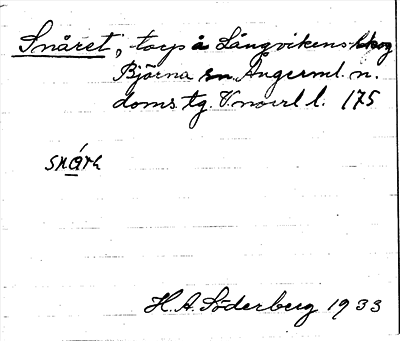 Snåret, torp å Långvikens skog
Björna sn. Ångerml. n.
doms. tg. V. norrl l. 175
snárε
H. A. Söderberg 1933